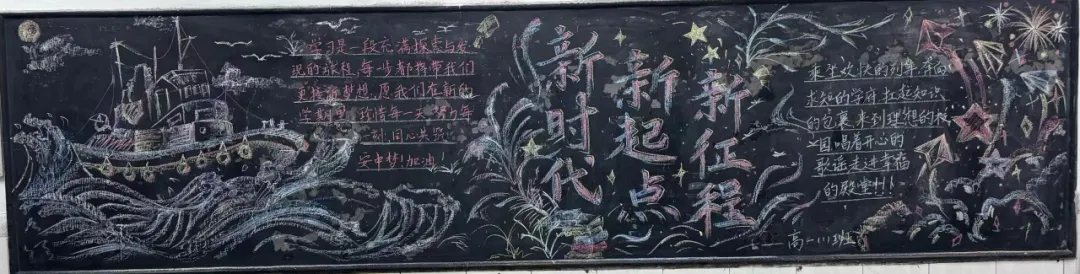 学习是一段充满探索与发
现的旅程,每一步都将带我们
更接近梦想,愿我们在新的
学期里,珍惜每一天,努力每
一刻,同心共筑
安中梦!加油!
新时代
新起点
新征程
乘坐欢快的列车,来到
求知的学府,扛起知识
的包裹,来到理想的校
园唱着开心的
歌谣走进幸福
的殿堂!
高一(11)班